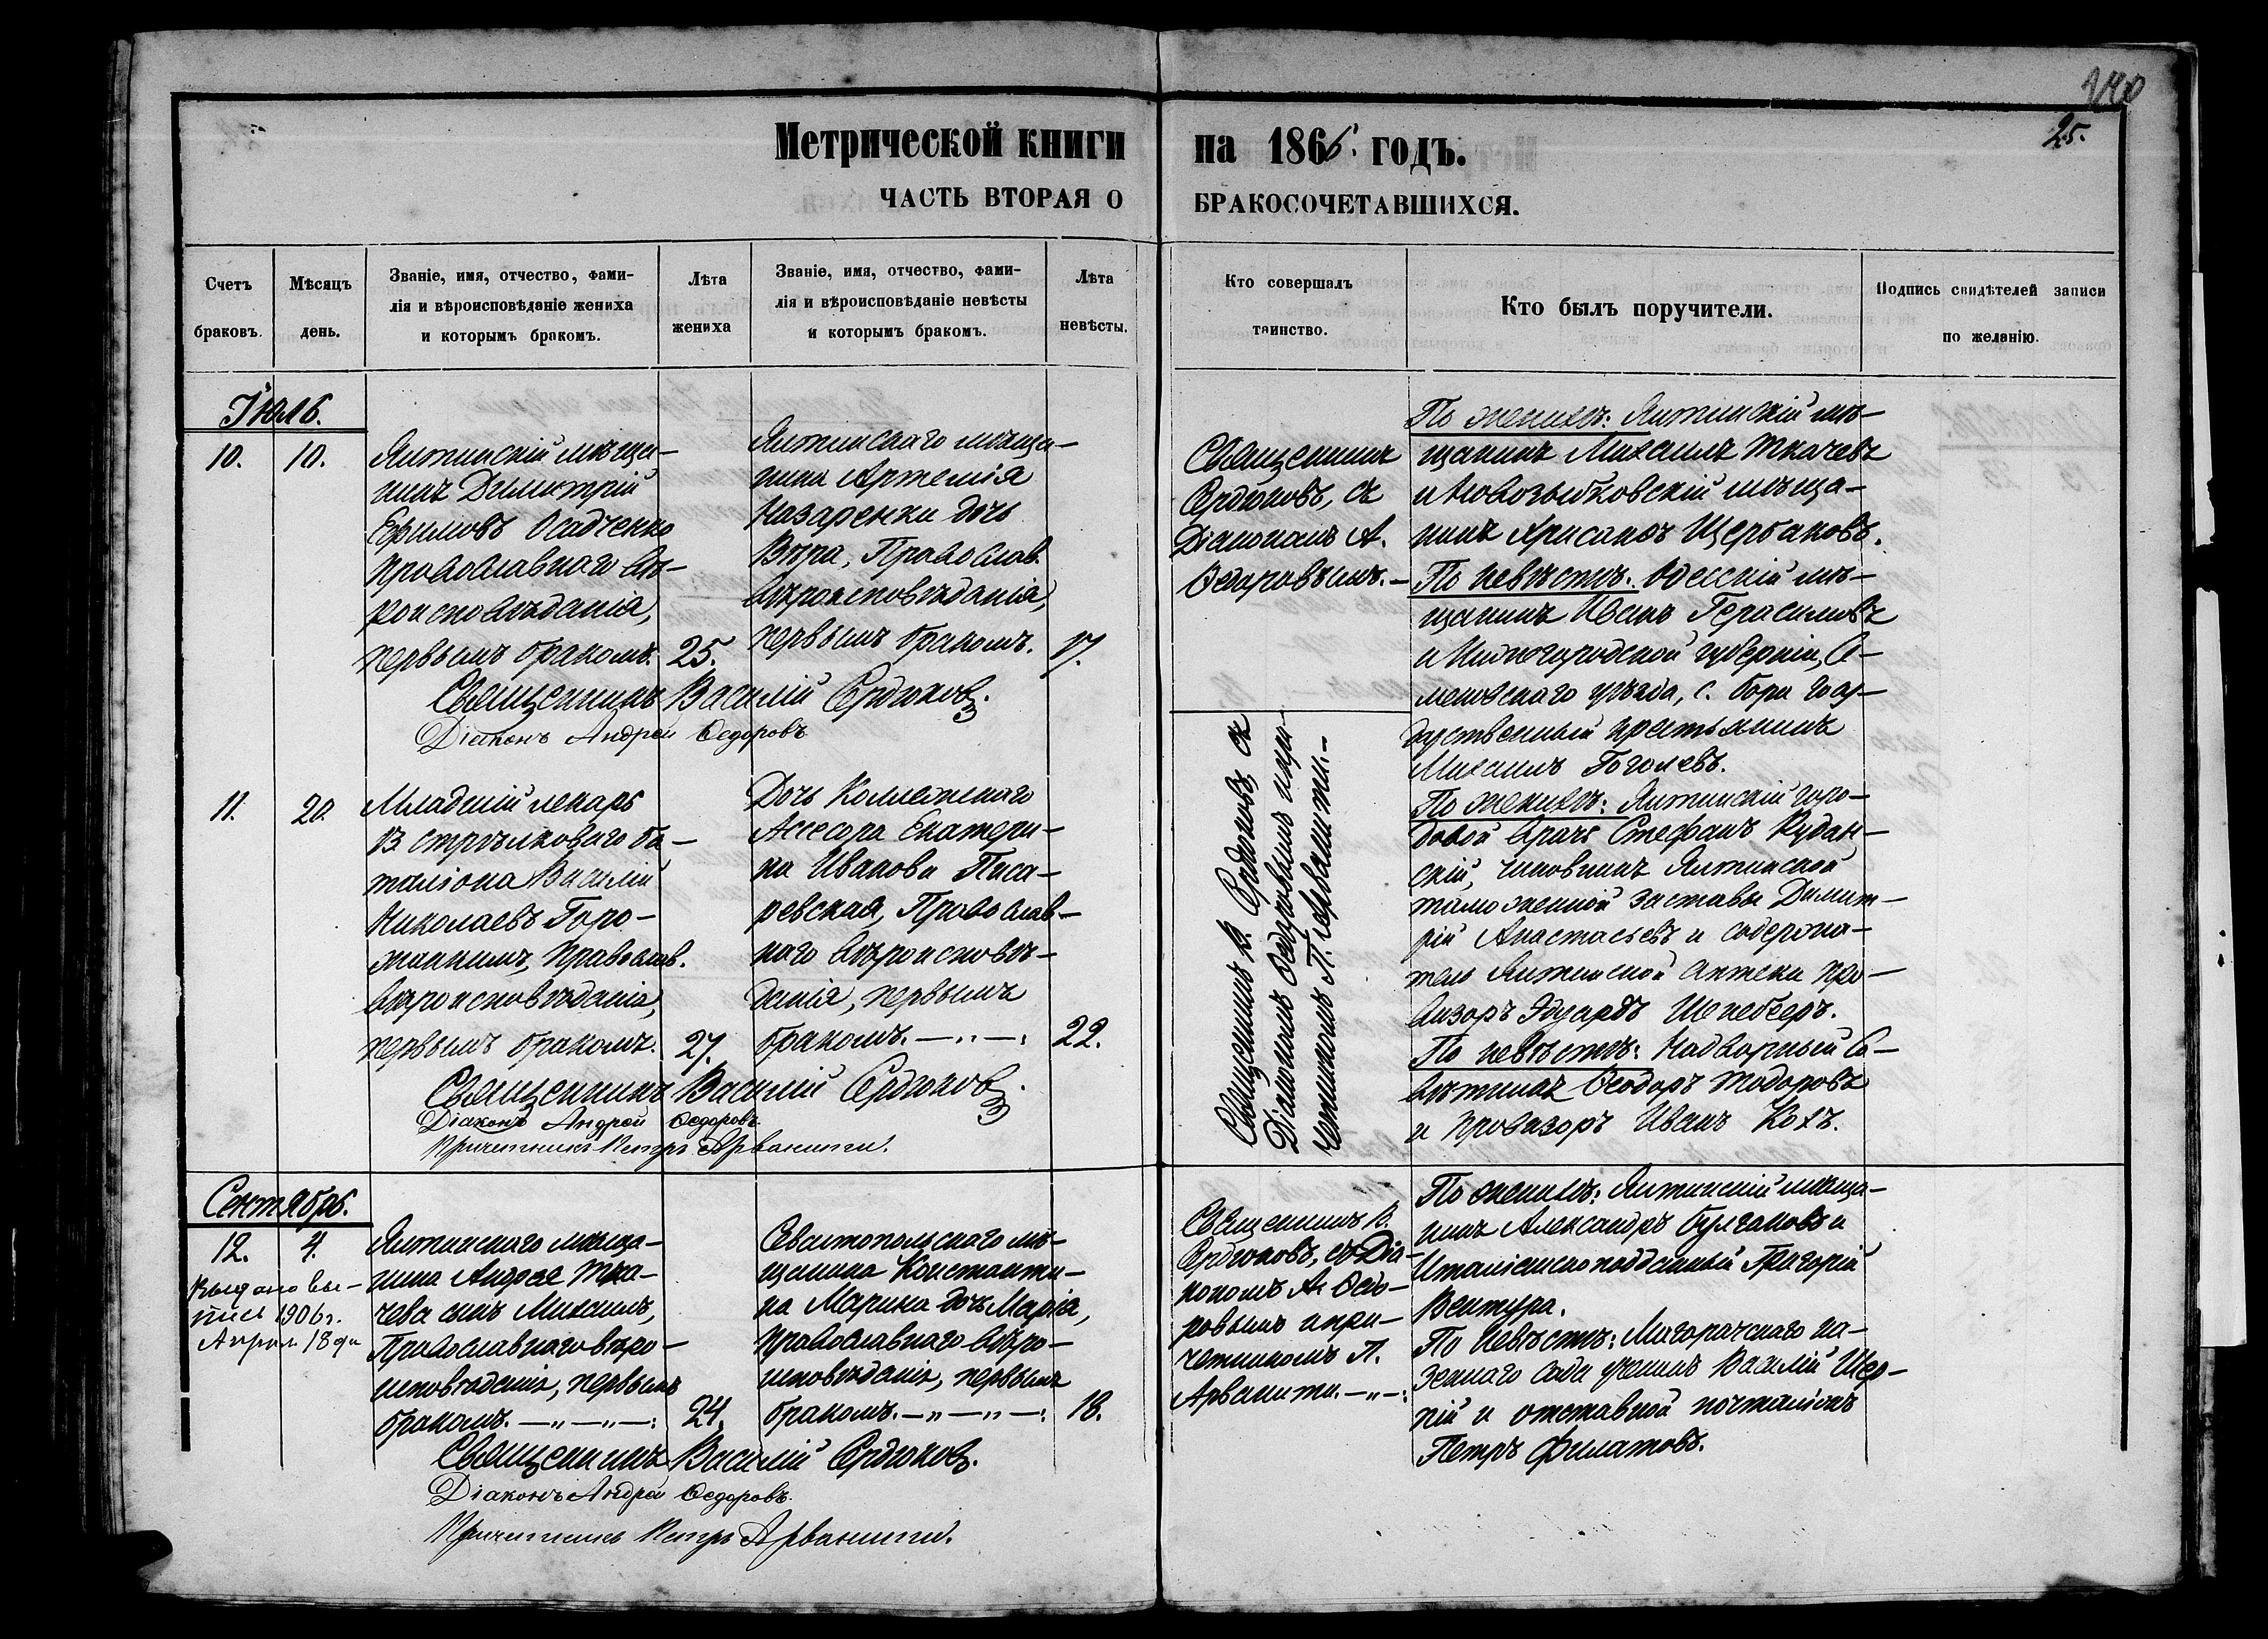 240
25.
Метрической книги на 1866. годъ.
ЧАСТЬ ВТОРАЯ О БРАКОСОЧЕТАВШИХСЯ.
Счетъ
браковъ.
Мѣсяцъ
день.
Званіе, имя, отчество, фами-
лія и вѣроисповѣданіе жениха
и которымъ бракомъ.
Лѣта
жениха
Званіе, имя, отчество, фами-
лія и вѣроисповѣданіе невѣсты
и которымъ бракомъ.
Лѣта
невѣсты.
Кто совершалъ
таинство.
Кто былъ поручители.
Подпись свидѣтелей записи
по желанію.
Іюль.
10.
10.
Ялтинскій мѣща-
нинъ Димитрій
Ефимовъ Осадченко
православнаго вѣ-
роисповѣданія,
первымъ бракомъ.
25.
Ялтинскаго мѣща-
нина Артемія
Назаренки дочь
Вѣра, Православ.
вѣроисповѣданія,
первымъ бракомъ.
17.
Священникъ
Сердюковъ, съ
Діакономъ А.
Ѳедоровымъ.—
По женихѣ: Ялтинскій мѣ-
щанинъ Михаилъ Ткачевъ
и Новозыбковскій мѣща-
нинъ Хрисанфъ Щербаковъ.
По невѣстѣ. Одесскій мѣ-
щанинъ Иванъ Герасимовъ
и Нижегородской губерніи, Се-
меновскаго уѣзда, с. Бора госу-
дарственный крестьянинъ
Михаилъ Гоголевъ.
Священникъ Василій Сердюковъ.
Діаконъ Андрей Ѳедоровъ
11.
20.
Младшій лекарь
13 стрѣлковаго ба-
таліона Василій
Николаевъ Горо-
жанкинъ, Православ.
вѣроисповѣданія,
первымъ бракомъ.
27.
Дочь Коллежскаго
Ассесора Екатери-
на Иванова Писа-
ревская, Православ-
наго вѣроисповѣ-
данія, первымъ
бракомъ. —„—:
22.
Священникъ В. Сердюковъ, съ
Діакономъ Ѳедоровымъ и при-
четникомъ П. Арванити.—
По женихѣ: Ялтинскій горо-
довой врачъ Стефанъ Кудан-
скій, чиновникъ Ялтинской
таможенной заставы Димит-
рій Анастасьевъ и содержа-
тель Ялтинской аптеки про-
визоръ Эдуардъ Шенебергъ.
По невѣстѣ: Надворный Со-
вѣтникъ Ѳеодоръ Тодоровъ
и провизоръ Иванъ Кохъ.
Священникъ Василій Сердюковъ.
Діаконъ Андрей Ѳедоровъ
Причетникъ Петръ Арванити.
Сентябрь.
12.
4.
Выдано вы-
пись 1906 г.
Апрѣл. 18 дн
Ялтинскаго мѣща-
нина Андрея Тка-
чева сынъ Михаилъ,
Православнаго вѣро-
исповѣданія, первымъ
бракомъ. —„—„—:
24.
Севастопольскаго мѣ-
щанина Константи-
на Марина дочь Марія,
православнаго вѣро-
исповѣданія, первымъ
бракомъ. —„—„—:
18.
Священникъ В.
Сердюковъ, съ Діа-
кономъ А. Ѳедо-
ровымъ и при-
четникомъ П.
Арванити. —„—:
По женихѣ: Ялтинскій мѣща-
нинъ Александръ Булгаковъ и
Италіанскоподданный Григорій
Вентура.
По невѣстѣ: Магарачскаго ка-
зеннаго сада ученикъ Василій Щер-
пій и отставной почталіонъ
Петръ Филатовъ.
Священникъ Василій Сердюковъ.
Діаконъ Андрей Ѳедоровъ.
Причетникъ Петръ Арванити.